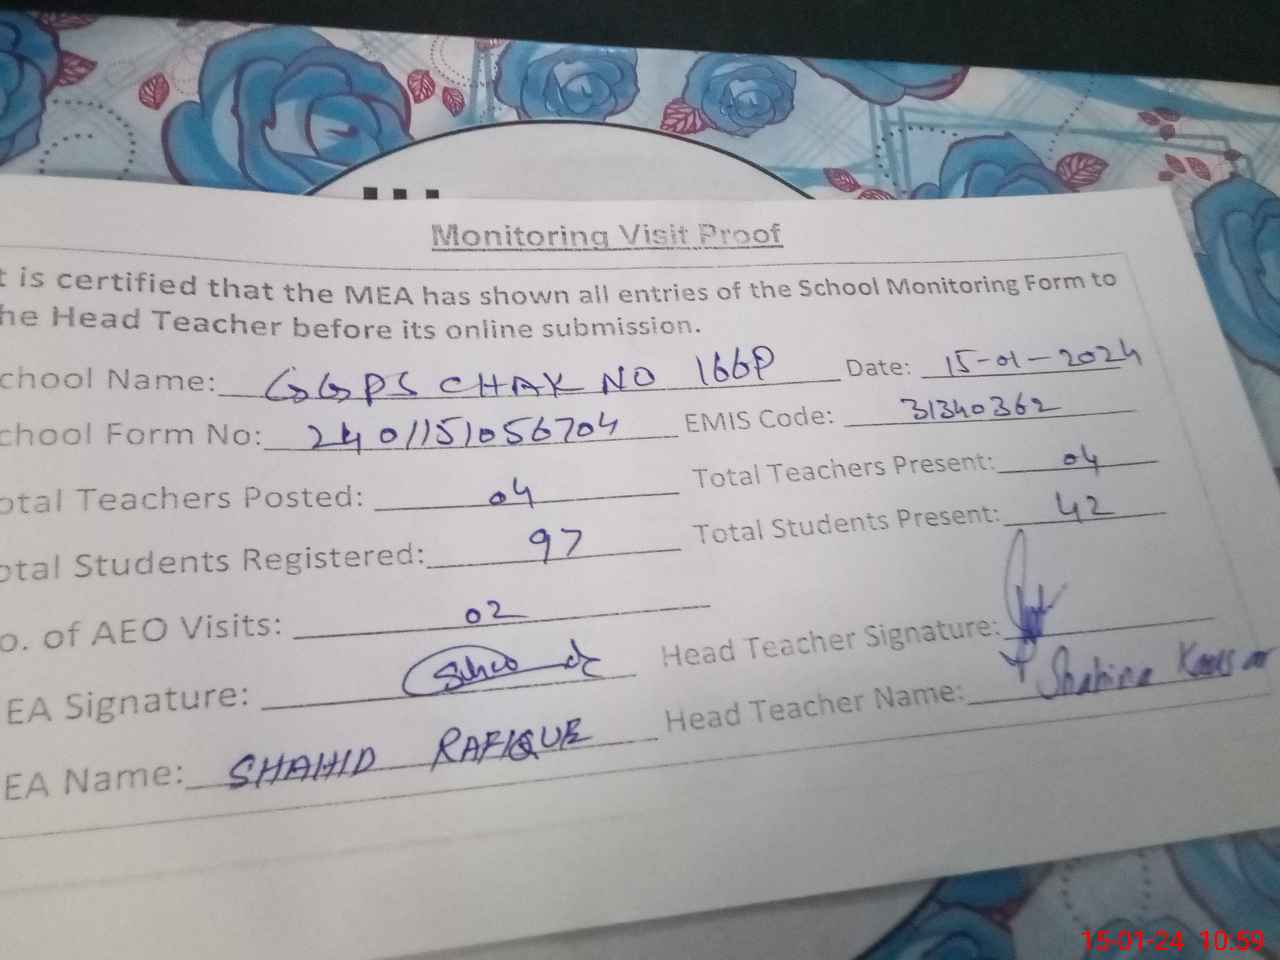 Monitoring Visit Proof
t is certified that the MEA has shown all entries of the School Monitoring Form to
he Head Teacher before its online submission.
chool Name: GGPS CHAK NO 166P Date: 15-01-2024
chool Form No: 2401151056704 EMIS Code: 31340362
otal Teachers Posted: 04 Total Teachers Present: 04
otal Students Registered: 97 Total Students Present: 42
o. of AEO Visits: 02
EA Signature: Head Teacher Signature:
EA Name: SHAHID RAFIQUE Head Teacher Name: Shahina Kausar
15-01-24 10:59